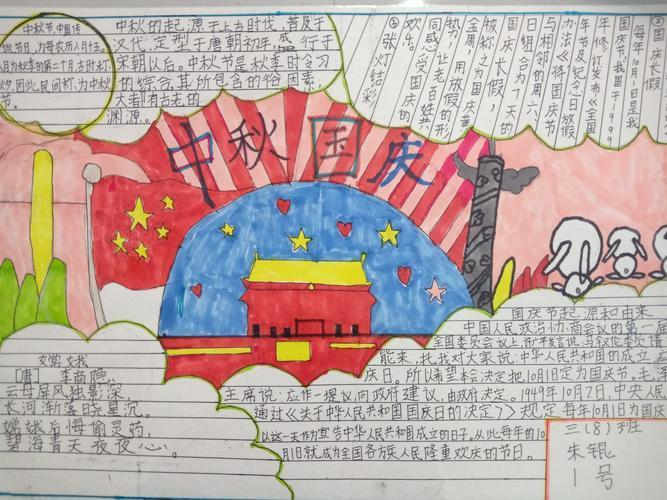 中秋节,中国传
统节日,为每农历八月十五,
八月为秋季的第二个月,古时称,
因此,民间称,为中秋
节.
中秋的起源于上古时代,普及于
汉代,定型于唐朝初年,盛行于
宋朝以后。中秋节是秋季时令习
的综合,其所包含的俗因素,
大都有古老的
渊源。
国庆长假
每年10月1日是我
国庆节,我国于1999
年修订发布《全国
年节及纪念日放假
办法》将国庆节
与相邻的周六、
日组合为7天的
国庆长假,
被称之为国庆黄
金周,用放假的形
势,让老百姓共
同感受国庆的
张灯结彩
中秋国庆
嫦娥
[唐] 李商隐
云母屏风烛影深,
长河渐落晓星沉。
嫦娥后悔偷灵药,
碧海青天夜夜心。
国庆节起源和由来
中国人民政治协商会议的第一
全国委员会议上,许广平发言说,马叙伦委员请
能来,托我对大家说:中华人民共和国的成立
庆日。所以希望本会决定把10月1日定为国庆节,毛泽
主席说:应作一提议,向政府建议,由政府决定。1949年10月2日,中央人民
通过《关于中华人民共和国国庆日的决定》规定每年10月1日为国庆
以这一天作为宣告中华人民共和国成立的日子。从此,每年的10
月1日就成为全国各方族人民隆重欢庆的节日。
三(8)班
朱锟
1号